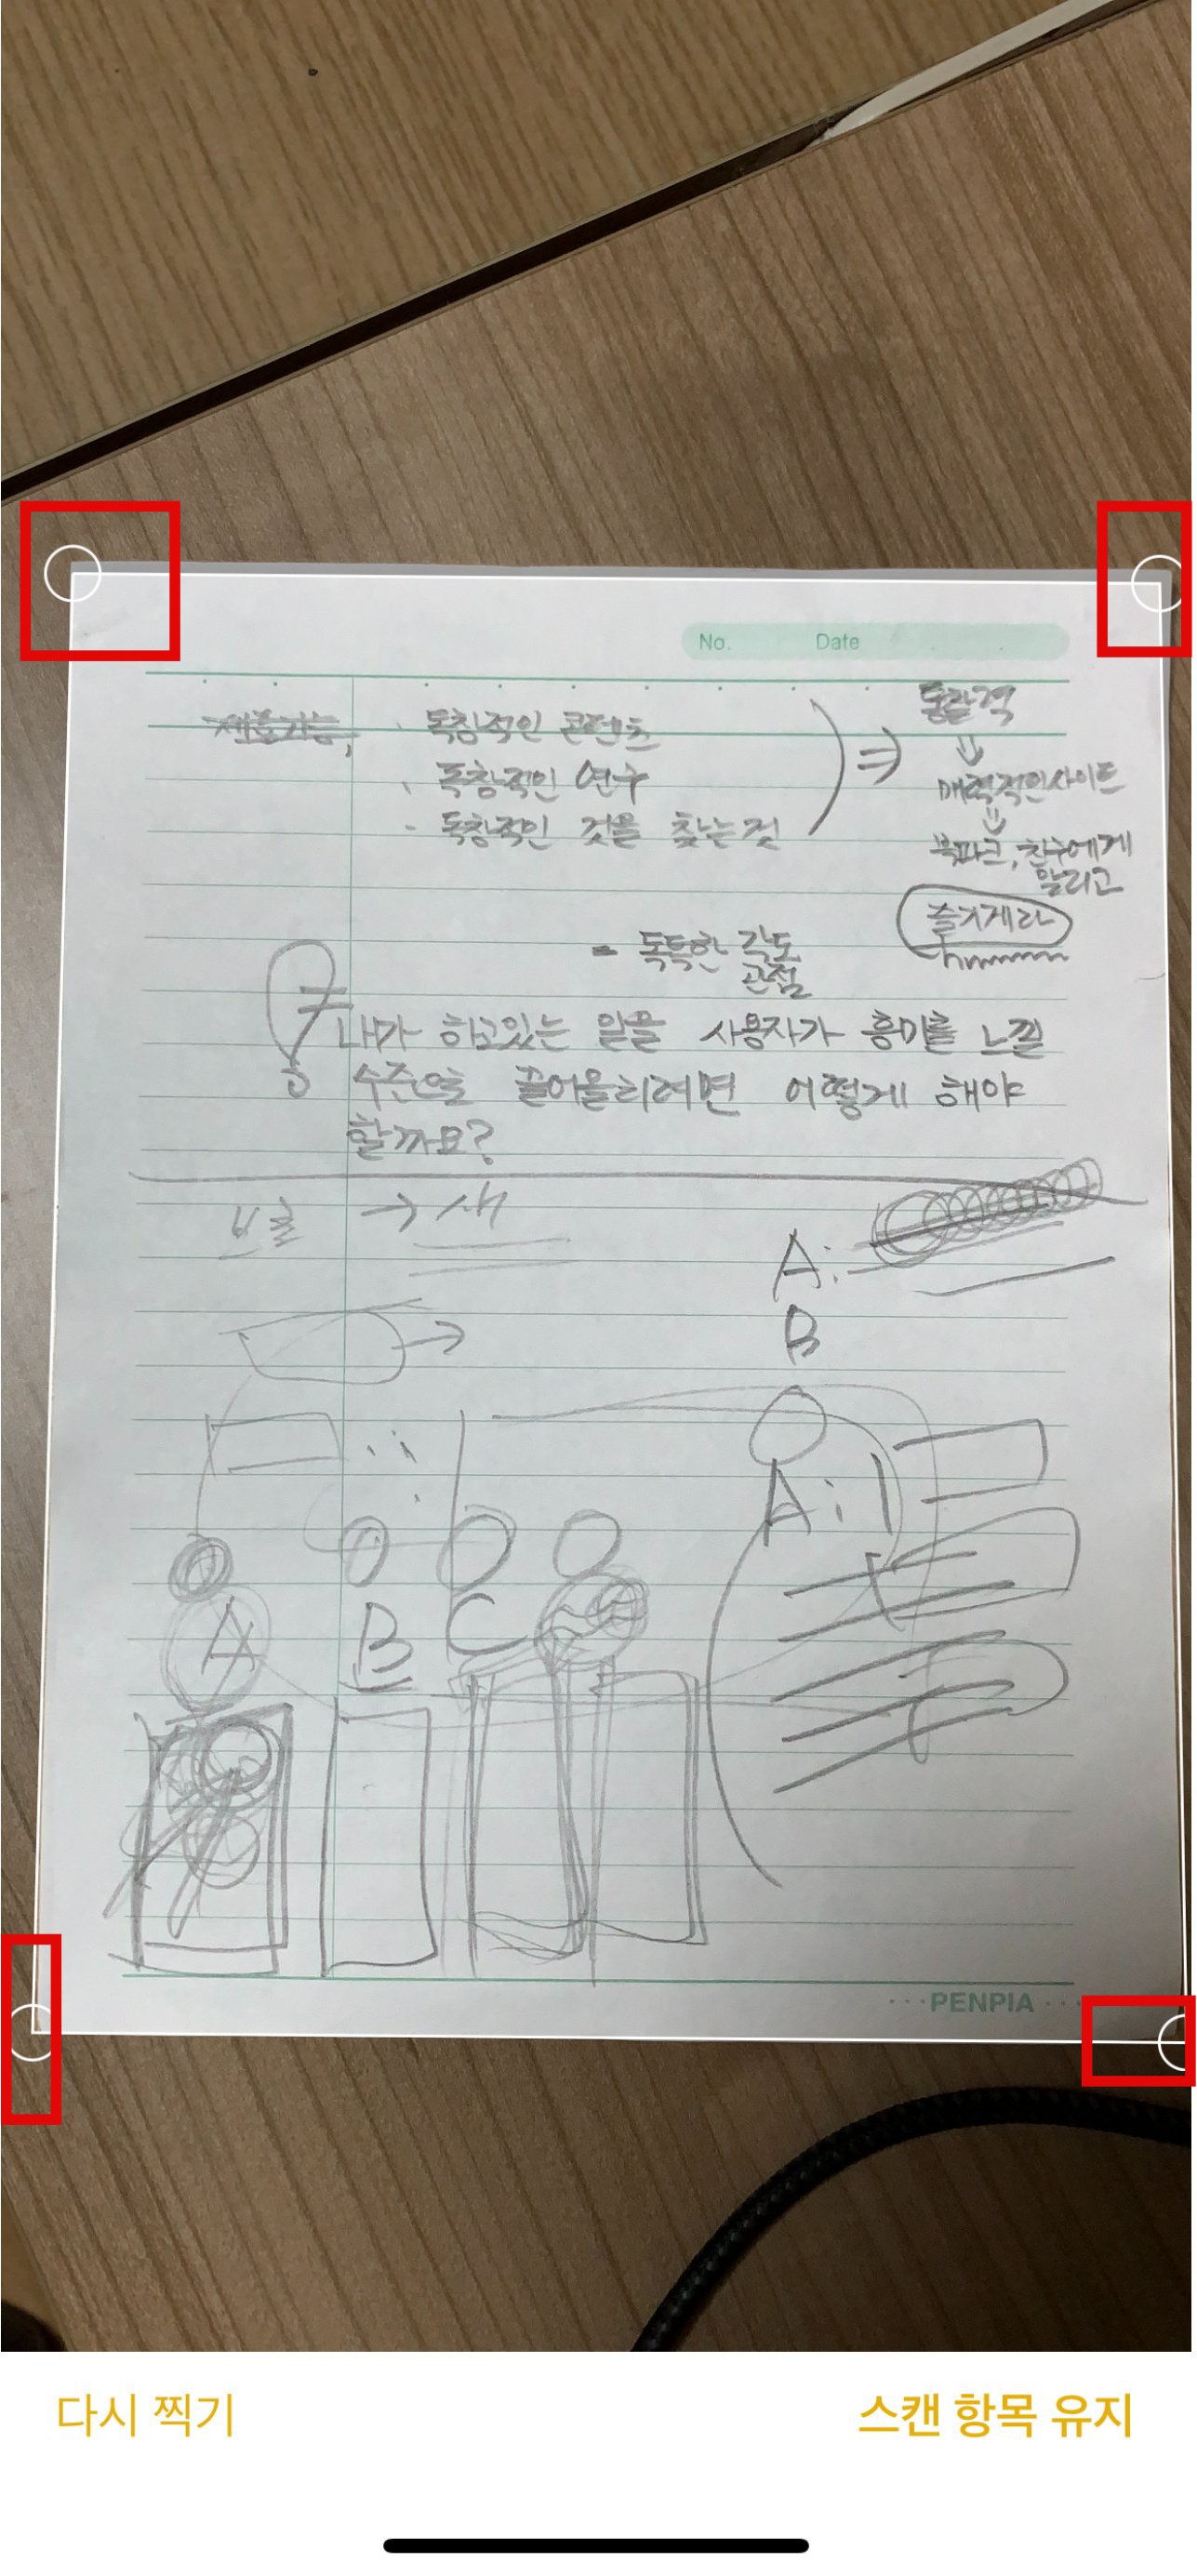 No. Date
독창적인 콘텐츠
독창적인 연구
독창적인 것을 찾는 것
통찰력
매력적인 사이트
북마크, 친구에게
알리고
즐기게 라
- 독특한 각도
관점
내가 하고있는 일을 사용자가 흥미를 느낄
수준으로 끌어올리려면 어떻게 해야
할까요?
→ 새
A:
B
A:
A B C
PENPIA
다시 찍기
스캔 항목 유지